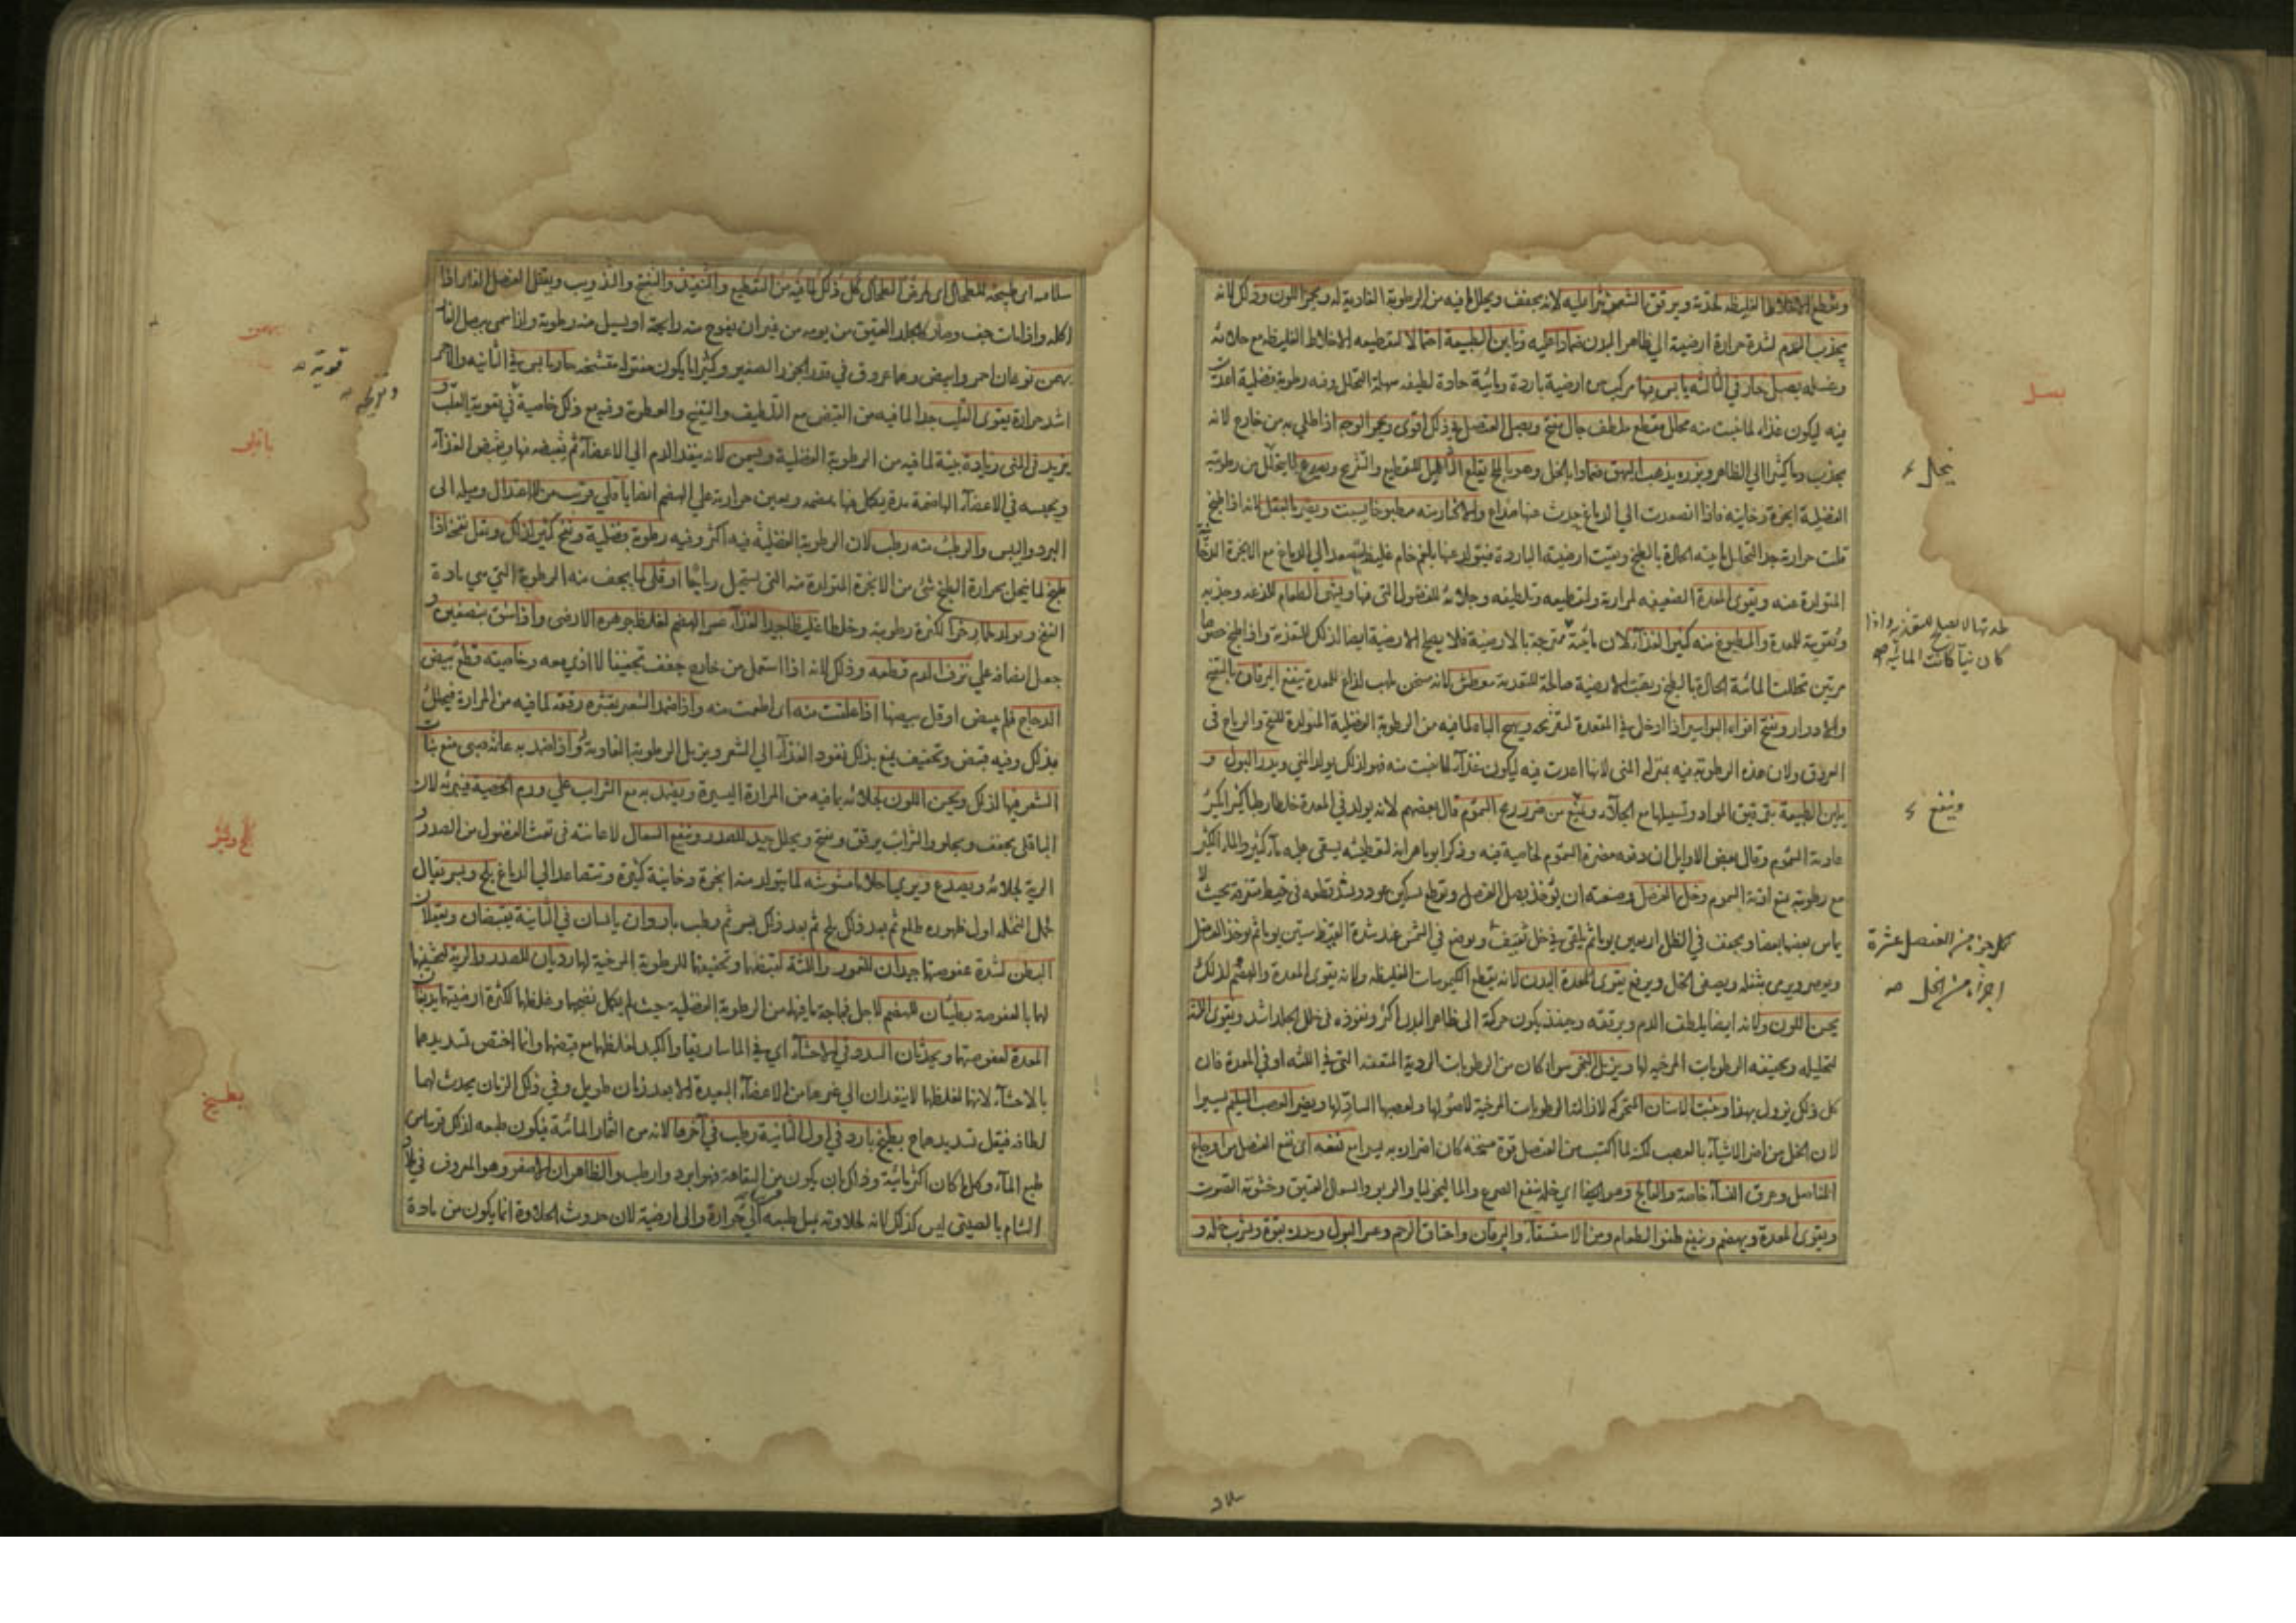 ويقطع الاخلاط الغليظة لحدته ويرقق الشعر نثرا عليه لانه يجفف ويحلل ما فيه من الرطوبة الغاذية له ويحمر اللون وذلك لانه
يجذب الدم لشدة حرارة ارضية الي ظاهر البدن ضمادا عليه ويلين الطبيعة احتمالا لتقطيعه الاخلاط الغليظه مع جلائه
وغسله بصل حار في الثالثه يابس فيها مركب من ارضية باردة ومائية حادة لطيفه سهلة التحلل وفيه رطوبة فضلية اعدت
فيه ليكون غذاء لما ينبت منه محلل مقطع ملطف جال مفتح وبصل العنصل في ذلك اقوي ويحمر الوجه اذا طلي به من خارج لانه
يجذب دما كثيرا الي الظاهر وبزره يذهب البهق ضمادا بالخل وهو بالملح يقلع الثآليل للتقطيع والتقريح ويصدع لما يتحلل من رطوبته
الفضلية ابخرة دخانيه فاذا تصعدت الي الدماغ حدث عنها صداع والاكثار منه مطبوخا يسبت ويضر بالعقل لانه اذا طبخ
قلت حرارته جدا لتحلل مائيته الحادة بالطبخ وبقيت ارضيته الباردة فيتولد عنها بلغم خام غليظ يتصعد الي الدماغ مع الابخرة
المتولدة عنه ويقوي المعدة الضعيفه لحرارته ولتقطيعه وتلطيفه وجلائه للفضول التي فيها ويشهي الطعام للذعه وجذبه
وتقويته للمعدة والمطبوخ منه كثير الغذاء لان مائيته ممتزجة بالارضية فلا يصلح الارضية ايضا لذلك للتغذية واذا طبخ خصوصا
مرتين تحللت المائية الحادة بالطبخ وبقيت الارضية صالحة للتغذية معطش لانه مسخن ملهب لذاع للمعدة ينفع اليرقان بالتفتيح
والادرار ويفتح افواه البواسير اذا ادخل في المقعدة لتقريحه ويهيج الباه لما فيه من الرطوبة الفضلية المولدة للنفخ والرياح في
العروق ولان هذه الرطوبة فيه بمنزلة المني لانها اعدت فيه ليكون غذاء لما ينبت منه فهو لذلك يولد المني ويدر البول و
يلين الطبيعة بترقيق المواد وتسييلها مع الجلاء وينفع من ضرر ريح السموم قال بعضهم لانه يولد في المعدة خلطا رطبا كثيرا يكسر
عادية السموم وقال بعض الاوايل ان دفعه مضرة السموم لخاصية فيه وذكر ابو ماهر انه لتعطيشه يسقي عليه ماء كثير والماء الكثير
مع رطوبته يمنع اذية السموم وخل العنصل وصنعته ان يؤخذ بصل العنصل ويقطع بسكين عود ويشد قطعه في خيط متفرقة بحيث لا
يماس بعضها بعضا ويجفف في الظل اربعين يوما ثم يلقي في خل ثقيف ويوضع في الشمس عند شدة القيظ ستين يوما ثم يؤخذ العنصل
ويعصر ويرمي بثفله ويصفي الخل ويرفع يقوي المعدة البدن لانه يقطع الكيموسات الغليظه ولانه يقوي المعدة والهضم لذلك
يحسن اللون ولانه ايضا يلطف الدم ويرققه وحينئذ يكون حركته الي ظاهر البدن اكثر ونفوذه في خلل الجلد اشد ويقوي اللثة
لتحليله وتجفيفه الرطوبات المرخيه لها ويزيل البخر سواء كان من الرطوبات الردية المتعفنة التي في اللثة او في المعدة فان
كل ذلك يزول بهذا ويثبت الاسنان المتحركه لازالته الرطوبات المرخية لاصولها ولعصبها السادّ لها ويضر العصب السليم يسيرا
لان الخل من اضر الاشياء بالعصب لكنه لما اكتسب من العنصل قوة مسخنه كان اضراره به يسيرا مع نفعه اي نفع العنصل من اوجاع
المفاصل وعرق النساء خاصة والفالج وهو ايضا اي خله ينفع الصرع والماليخوليا والربو والسعال العتيق وخشونة الصوت
ويقوي المعدة ويهضم وينفع طفو الطعام ومن الاستسقاء واليرقان واختناق الرحم وعسر البول ويدره بقوة وشرب خله و
بصل
يتحلل
طبيعتها لا يصلح للتغذيه واذا
كان نيّا كانت المائية
وينفع
لكل جزء من العنصل عشرة
اجزاء من الخل صح
سلاقته اي طبيخه للطحال اي لمرض الطحال كل ذلك لما فيه من التقطيع والتنفيذ والتفتيح والتذويب ويقتل العنصل الفار اذا
اكله واذا مات جف وصار كالجلد العتيق من يومه من غير ان يفوح منه رايحة او يسيل منه رطوبة ولذا سمي ببصل الفار
بهمن نوعان احمر وابيض وهما عروق في قدر الجزر الصغير وكثيرا ما يكون مفتولة متشنجه حار يابس في الثانيه والاحمر
اشد حرارة يقوي القلب جدا لما فيه من القبض مع التلطيف والتفتيح والعطرية وفيه مع ذلك خاصية في تقوية القلب و
يزيد في المني زيادة بينة لما فيه من الرطوبة الفضلية ويسمن لانه ينفذ الدم الي الاعضاء ثم يقبضه فيها ويقبض الغذاء
ويحبسه في الاعضاء الهاضمة مدة يكمل فيها هضمه ويعين حرارته علي الهضم ايضا باقلي قريب من الاعتدال وميله الي
البرد واليبس والرطب منه رطب لان الرطوبة الفضلية فيه اكثر وفيه رطوبة فضلية ونفخ كثير لذلك ويقل نفخه اذا
طبخ لما يتحلل بحرارة الطبخ شئ من الابخرة المتولدة منه التي يستحيل رياحا او قلي لما يجف منه الرطوبة التي هي مادة
النفخ ويولد لحما رخوا لكثرة رطوبته وخلطا غليظا جيد الغذاء عسر الهضم لغلظ جوهره الارضي واذا شق بنصفين و
جعل انصافه علي نزف الدم قطعه وذلك لانه اذا استعمل من خارج جفف تجفيفا لا اذي معه وخاصيته قطع بيض
الدجاج فلم يبض او قل بيضها اذا علفت منه اي اطعمت منه واذا ضمد الشعر بقشره رققه لما فيه من المرارة فيحلل
بذلك وفيه قبض وتجفيف يمنع بذلك نفوذ الغذاء الي الشعر ويزيل الرطوبة الغاذية واذا ضمد به عانة صبي منع نبات
الشعر فيها لذلك ويحسن اللون لجلائه بما فيه من المرارة اليسيرة ويضمد به مع الشراب علي ورم الخصية فيبرئه لان
الباقلي يجفف ويجلو والشراب يرقق ويفتح ويحلل جيد للصدر وينفع السعال لاعانته في نفث الفضول من الصدر و
الرية لجلائه ويصدع ويري احلاما مشوشه لما يتولد منه ابخرة دخانية كثيرة وتتصاعد الي الدماغ بلح وبسر يقال
لحمل النخله اول ظهوره طلع ثم بعد ذلك بلح ثم بعد ذلك بسر ثم رطب باردان يابسان في الثانية يقبضان ويعقلان
البطن لشدة عفوصتها جيدان للعمور واللثة لقبضها وتجفيفها للرطوبة المرخية لها رديان للصدر والرية لتخشينها
لها بالعفوصة بطيئان للهضم لاجل فجاجة ما فيها من الرطوبة الفضلية حيث لم يكمل نضجها وغلظها لكثرة ارضيتها يدبغان
المعدة لعفوصتها ويحدثان السدد في الاحشاء اي في الماساريقا والكبد لغلظها مع قبضها وانما اختص تسديدهما
بالاحشاء لانهما لغلظهما لا ينفذان الي غيرها من الاعضاء البعيدة الا بعد زمان طويل وفي ذلك الزمان يحدث لهما
لطافة فيقل تسديدهما بطيخ بارد في اول الثانية رطب في آخرها لانه من الثمار المائية فيكون طبعه لذلك قريبا من
طبع الماء وكل ما كان اكثر مائية وذلك بان يكون من التفاهة فهو ابرد وارطب والظاهر ان الاصفر وهو المعروف في بلاد
الشام بالصيفي ليس كذلك لانه لحلاوته يميل طبعه الي حرارة والي ارضية لان حدوث الحلاوة انما يكون من مادة
بهمن
باقلي
بلح وبسر
بطيخ